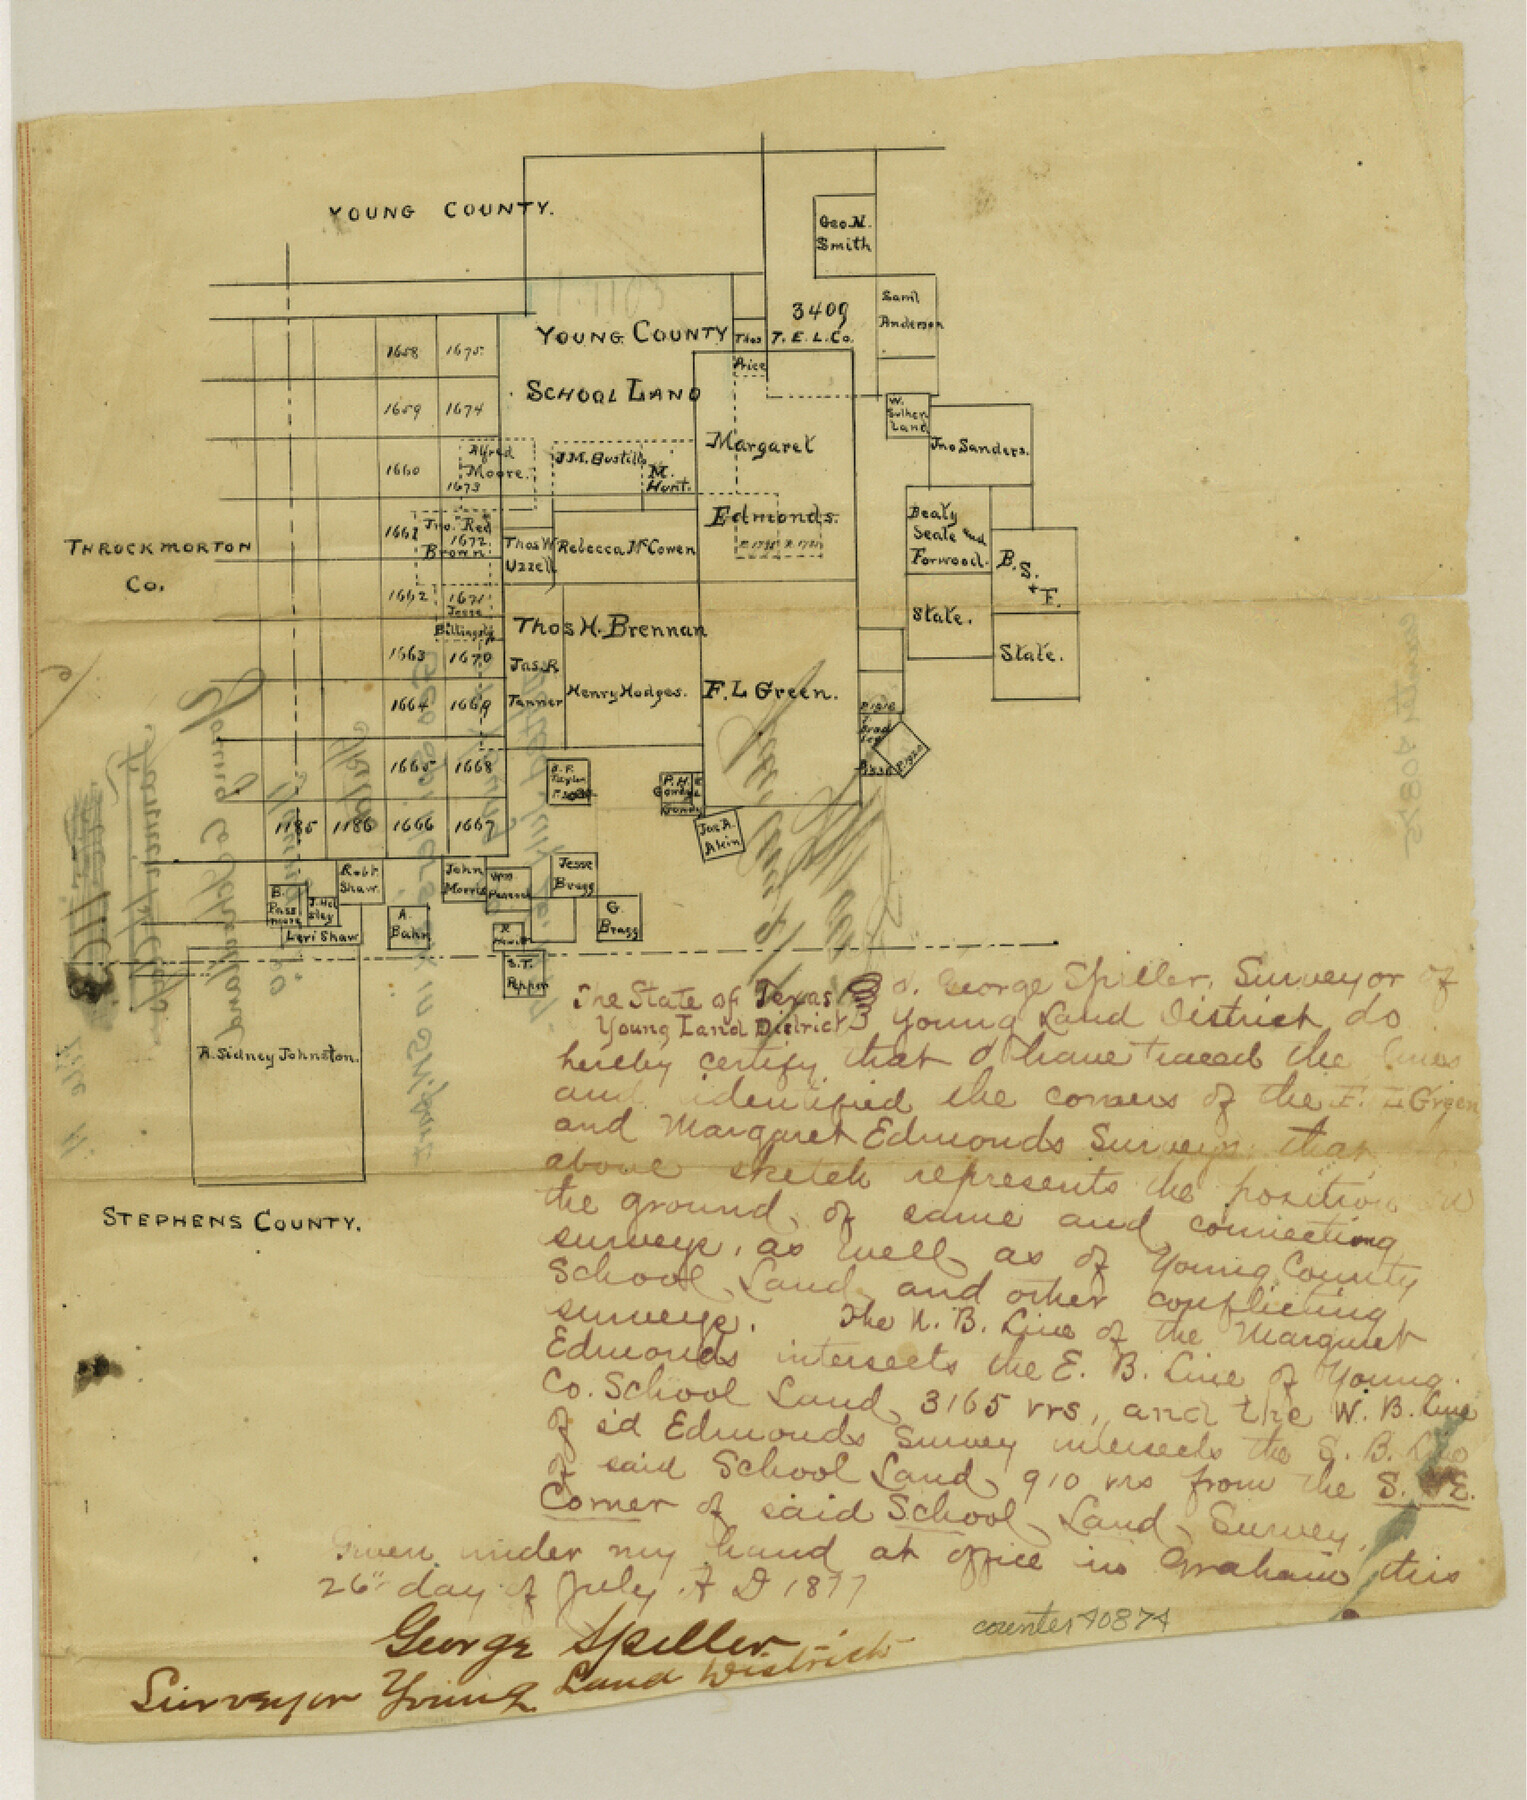 YOUNG COUNTY.
Geo. N.
Smith
Saml
Anderson
3409
T. E. L. Co.
YOUNG COUNTY
SCHOOL LAND
Thos
Price
1658
1675
1659
1674
1660
Alfred
Moore.
1673
J.M. Bustillo
M.
Hunt.
Margaret
Edmonds.
W.
Suther
Land
Jno Sanders.
Beaty
Seale and
Forwood.
B. S.
+ F.
State.
State.
THROCKMORTON
Co.
1661
Jno. Red
1672
Brown
Thos W
Uzzell
Rebecca McCowen
1662
1671
Jesse
Billingsly
Thos H. Brennan
1663
1670
Jas. R
Tanner
Henry Hodges.
F. L Green.
1664
1669
1665
1668
1185
1186
1666
1667
P. H.
Jas A.
Akin
Robt.
Shaw.
John
Morris
Wm
Peacock
Jesse
Bragg
B.
Pass
more
A.
Bahn
G.
Bragg
Levi Shaw
S. T.
Pepper
A. Sidney Johnston.
STEPHENS COUNTY.
The State of Texas
Young Land District
I. George Spiller, Surveyor of
Young Land District do
hereby certify that I have traced the lines
and identified the corners of the F. L Green
and Margaret Edmonds Surveys: that
above sketch represents the position on
the ground, of same and connecting
surveys, as well as of Young County
School Land and other conflicting
surveys. The N. B. Line of the Margaret
Edmonds intersects the E. B. Line of Young
Co. School Land 3165 vrs, and the W. B. Line
of sd Edmonds Survey intersects the S. B. Line
of said School Land 910 vrs from the S. E.
Corner of said School Land Survey.
Given under my hand at office in Graham this
26" day of July A D 1877
George Spiller
Surveyor Young Land District
counter 40874